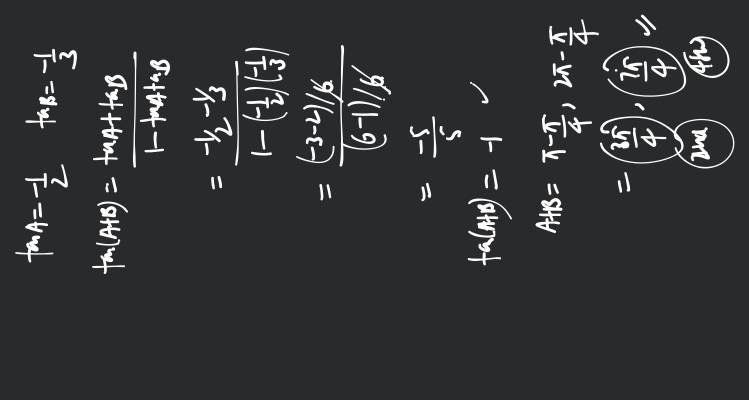 tanA = -1/2 tanB = -1/3
tan(A+B) = tanA + tanB / 1 - tanA + tanB
= -1/2 - 1/3 / 1 - (-1/2)(-1/3)
= (-3-2)//6 / (6-1)//6
= -5/5
tan(A+B) = -1 ✓
A+B = π - π/4, 2π - π/4
= 3π/4, 7π/4 //
2nd 4th